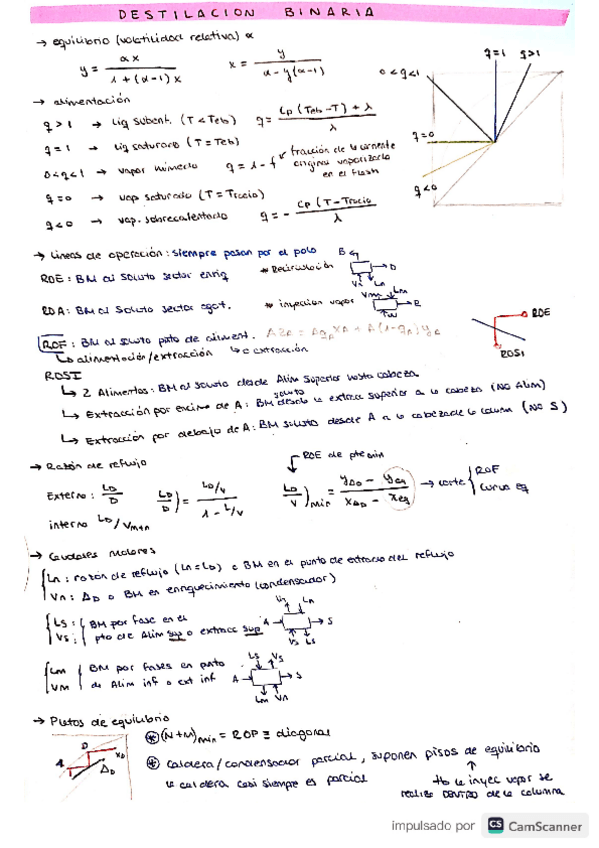 DESTILACION BINARIA
→ equilibrio (volatilidad relativa) α
y = αx / 1+(α-1)x    x = y / α-y(α-1)
q=1 q>1
0<q<1
q=0
q<0
→ alimentación
q>1 → Liq subenf. (T<Teb) q = Cp(Teb-T)+λ / λ
q=1 → Liq saturado (T=Teb)
0<q<1 → vapor húmedo q = 1-f ↙ fracción de la corriente original vaporizada en el flash
q=0 → vap saturado (T=Trocio)
q<0 → vap. sobrecalentado q = - Cp(T-Trocio / λ
→ Líneas de operación: siempre pasan por el polo
ROE: BM al soluto sector enriq * Recirculación
RDA: BM al soluto sector agot. * inyeccion vapor
ROF: BM al soluto pto de aliment.
↳ alimentación/extracción ↳ extracción
ROE
ROSI
ROSI
↳ 2 Alimentos: BM al soluto desde Alim Superior hasta cabeza
↳ Extracción por encima de A: BM soluto desde la extracc superior a la cabeza (NO Alim)
↳ Extracción por debajo de A: BM soluto desde A a la cabeza de la columna (NO S)
→ Razón de reflujo
ROE de pte min
Externo: LD/D    LD/D) = LD/V / 1-L/V    LD/V)min = yΔD - yeq / xΔD - xeq → corte { ROF Curva eq
interno LD/Vm+n
→ Caudales molares
{ Ln: razón de reflujo (Ln=LD) o BM en el punto de extracc del reflujo
Vn: ΔD o BM en enriquecimiento (condensador)
{ Ls: Vs: { BM por fase en el pto de Alim sup o extracc sup
Vn Ln
A→ →S
Vs Ls
{ Lm Vm { BM por fases en punto de Alim inf o ext inf
Ls Vs
A→ →S
Lm Vn
→ Pistos de equilibrio
* (N+M)min = ROP ≡ diagonal
* caldera/condensador parcial, suponen pisos de equilibrio
la caldera casi siempre es parcial
realiza DENTRO de la columna
impulsado por CS CamScanner